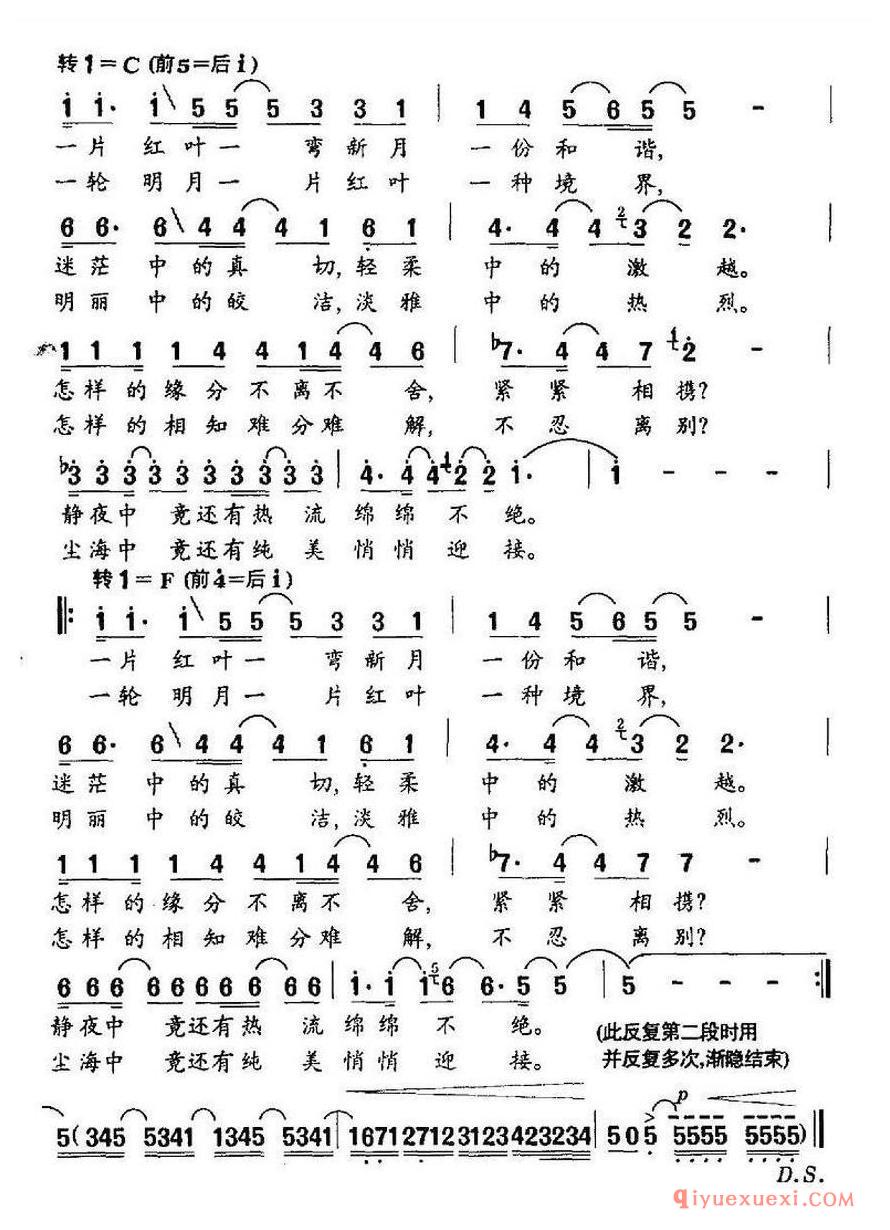 转1=C(前5=后i)
i i· i 5 5 5 3 3 1 | 1 4 5 6 5 5 - |
一片 红叶一 弯新月 一份和 谐,
一轮 明月一 片红叶 一种境 界,
6 6· 6 4 4 4 1 6 1 | 4· 4 4 3 2 2· |
迷茫 中的真 切,轻柔 中 的 激 越。
明丽 中的皎 洁,淡雅 中 的 热 烈。
1 1 1 1 4 4 1 4 4 6 | ♭7· 4 4 7 2 - |
怎样的缘分不离不 舍, 紧 紧 相携?
怎样的相知难分难 解, 不 忍 离别?
♭3 3 3 3 3 3 3 3 3 3 | 4· 4 4 2 2 i· | i - - - |
静夜中 竟还有热 流 绵绵 不 绝。
尘海中 竟还有纯 美 悄悄 迎 接。
转1=F(前4=后i)
‖: i i· i 5 5 5 3 3 1 | 1 4 5 6 5 5 - |
一片 红叶一 弯新月 一份和 谐,
一轮 明月一 片红叶 一种境 界,
6 6· 6 4 4 4 1 6 1 | 4· 4 4 3 2 2· |
迷茫 中的真 切,轻柔 中 的 激 越。
明丽 中的皎 洁,淡雅 中 的 热 烈。
1 1 1 1 4 4 1 4 4 6 | ♭7· 4 4 7 7 - |
怎样的缘分不离不 舍, 紧 紧 相携?
怎样的相知难分难 解, 不 忍 离别?
6 6 6 6 6 6 6 6 6 6 | i· i i 6 6· 5 5 | 5 - - - :‖
静夜中 竟还有热 流 绵绵 不 绝。
(此反复第二段时用
尘海中 竟还有纯 美 悄悄 迎 接。
并反复多次,渐隐结束)
p
5(345 5341 1345 5341 | 1671 2712 3123 423234 | 5 0 5 5555 5555) ‖
D.S.
qiyuexuexi.com